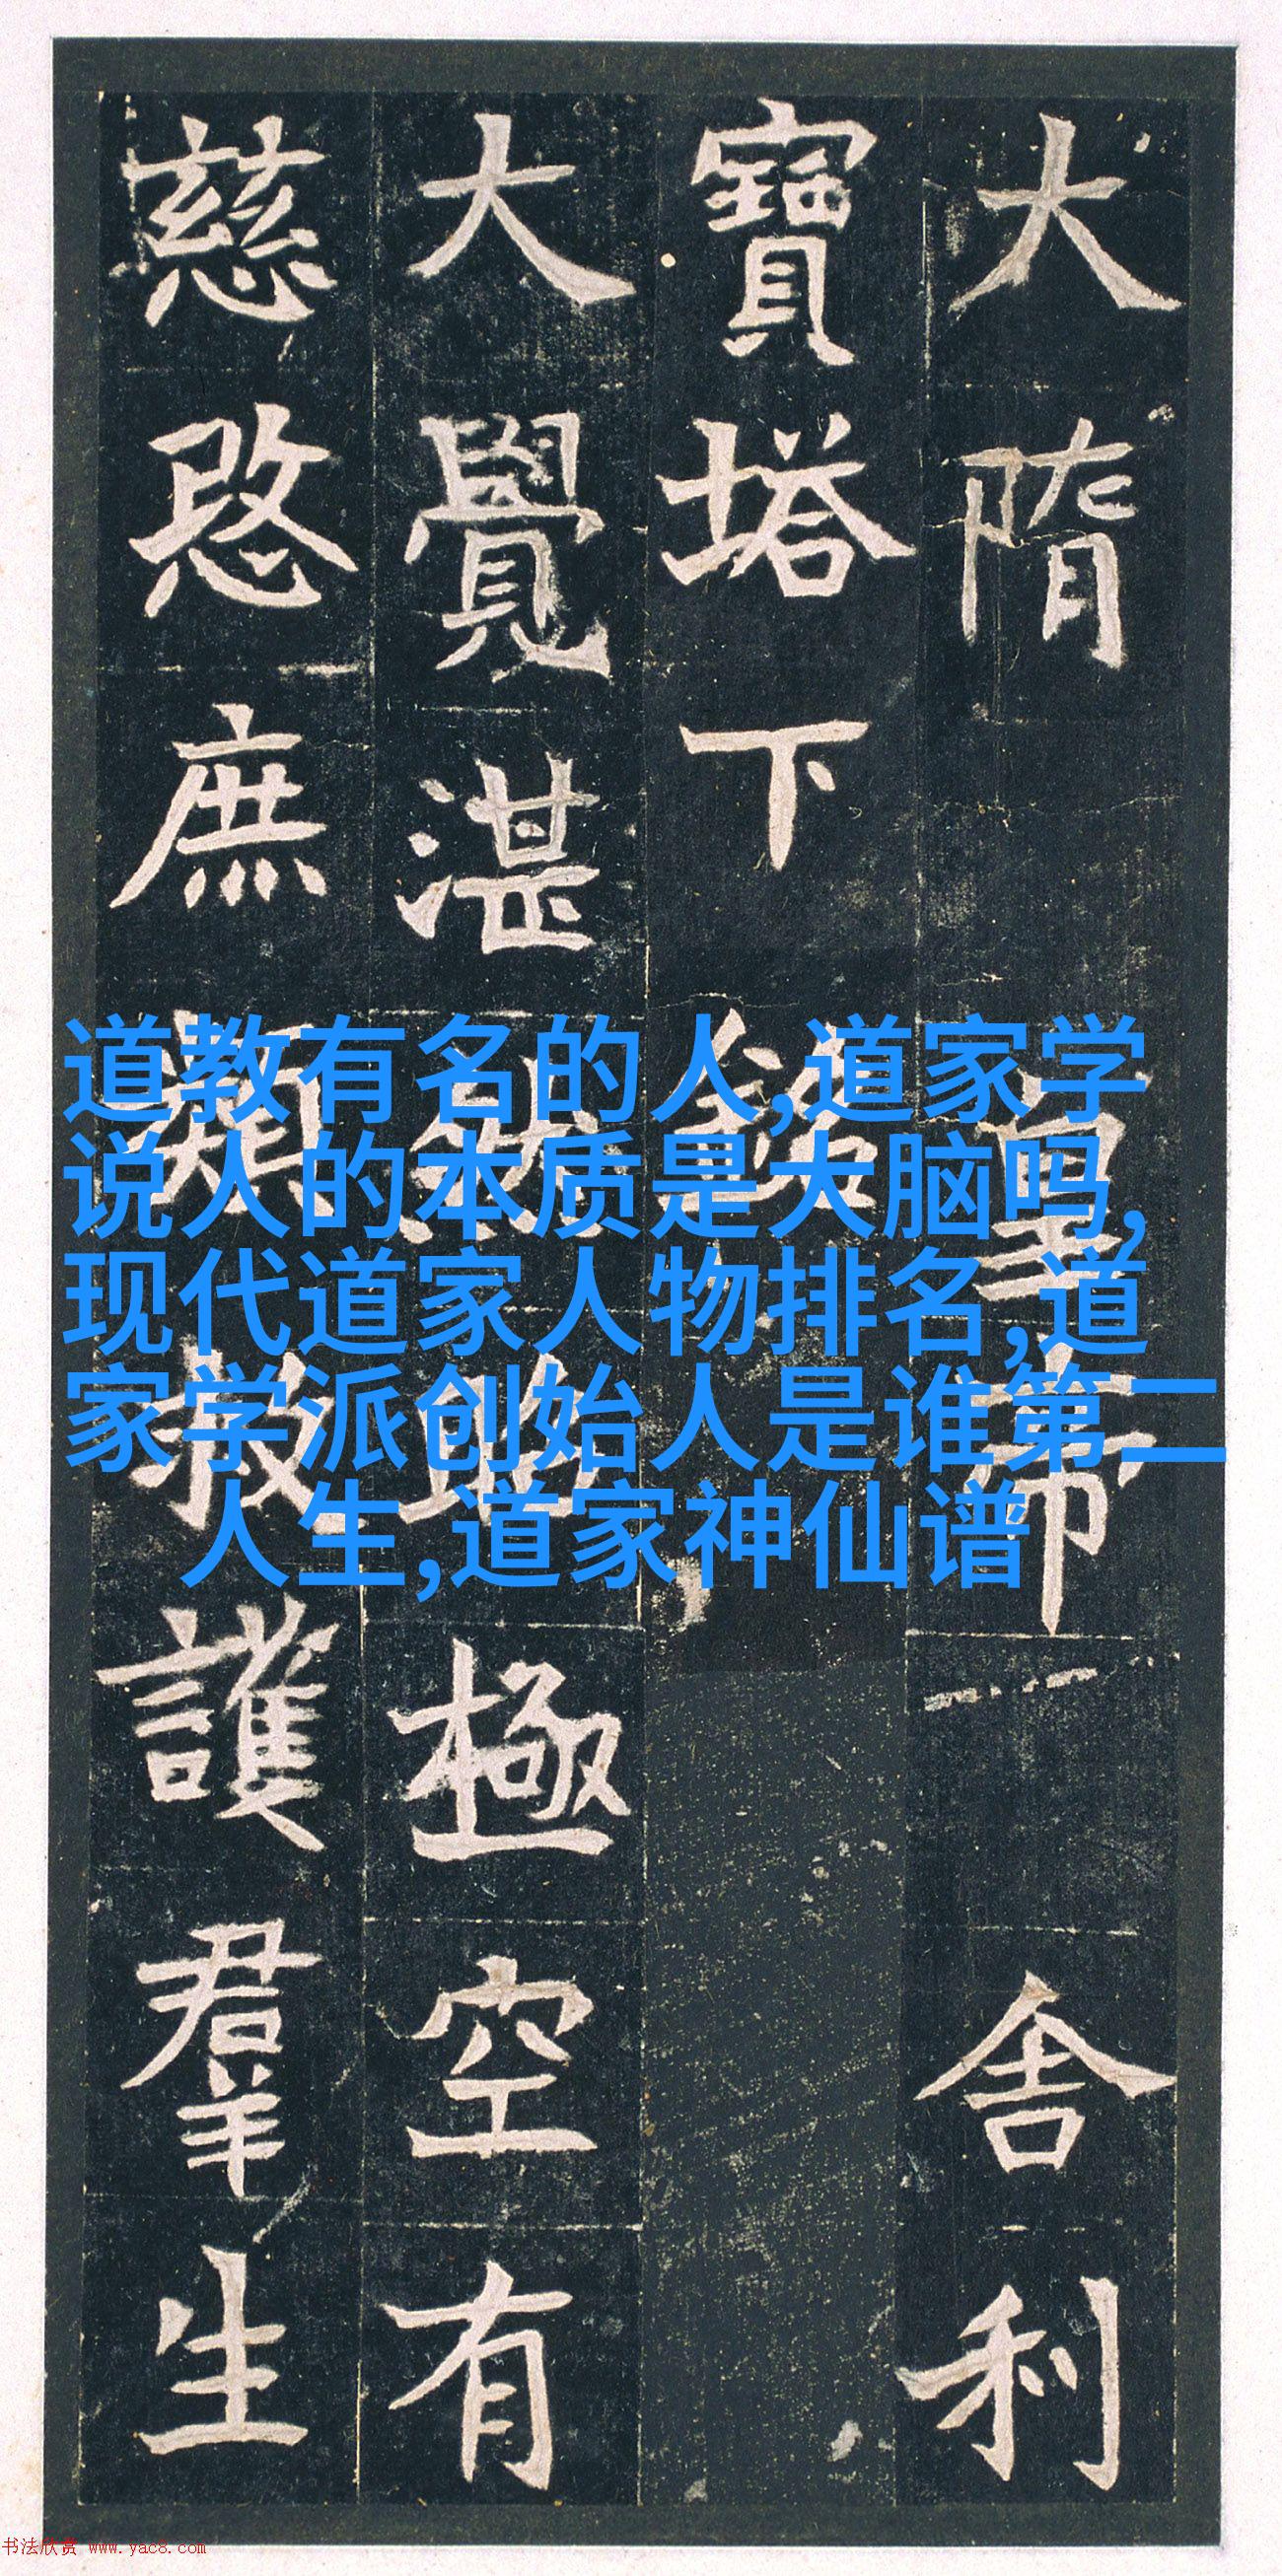 大隋皇帝舍利
寶塔下銘
大覺湛然昭極空有
慈愍庶類救護羣生
道教有名的人,道家学
说人的本质是大脑吗,
现代道家人物排名,道
家学派创始人是谁第二
人生,道家神仙谱
书法欣赏 www.yac8.com